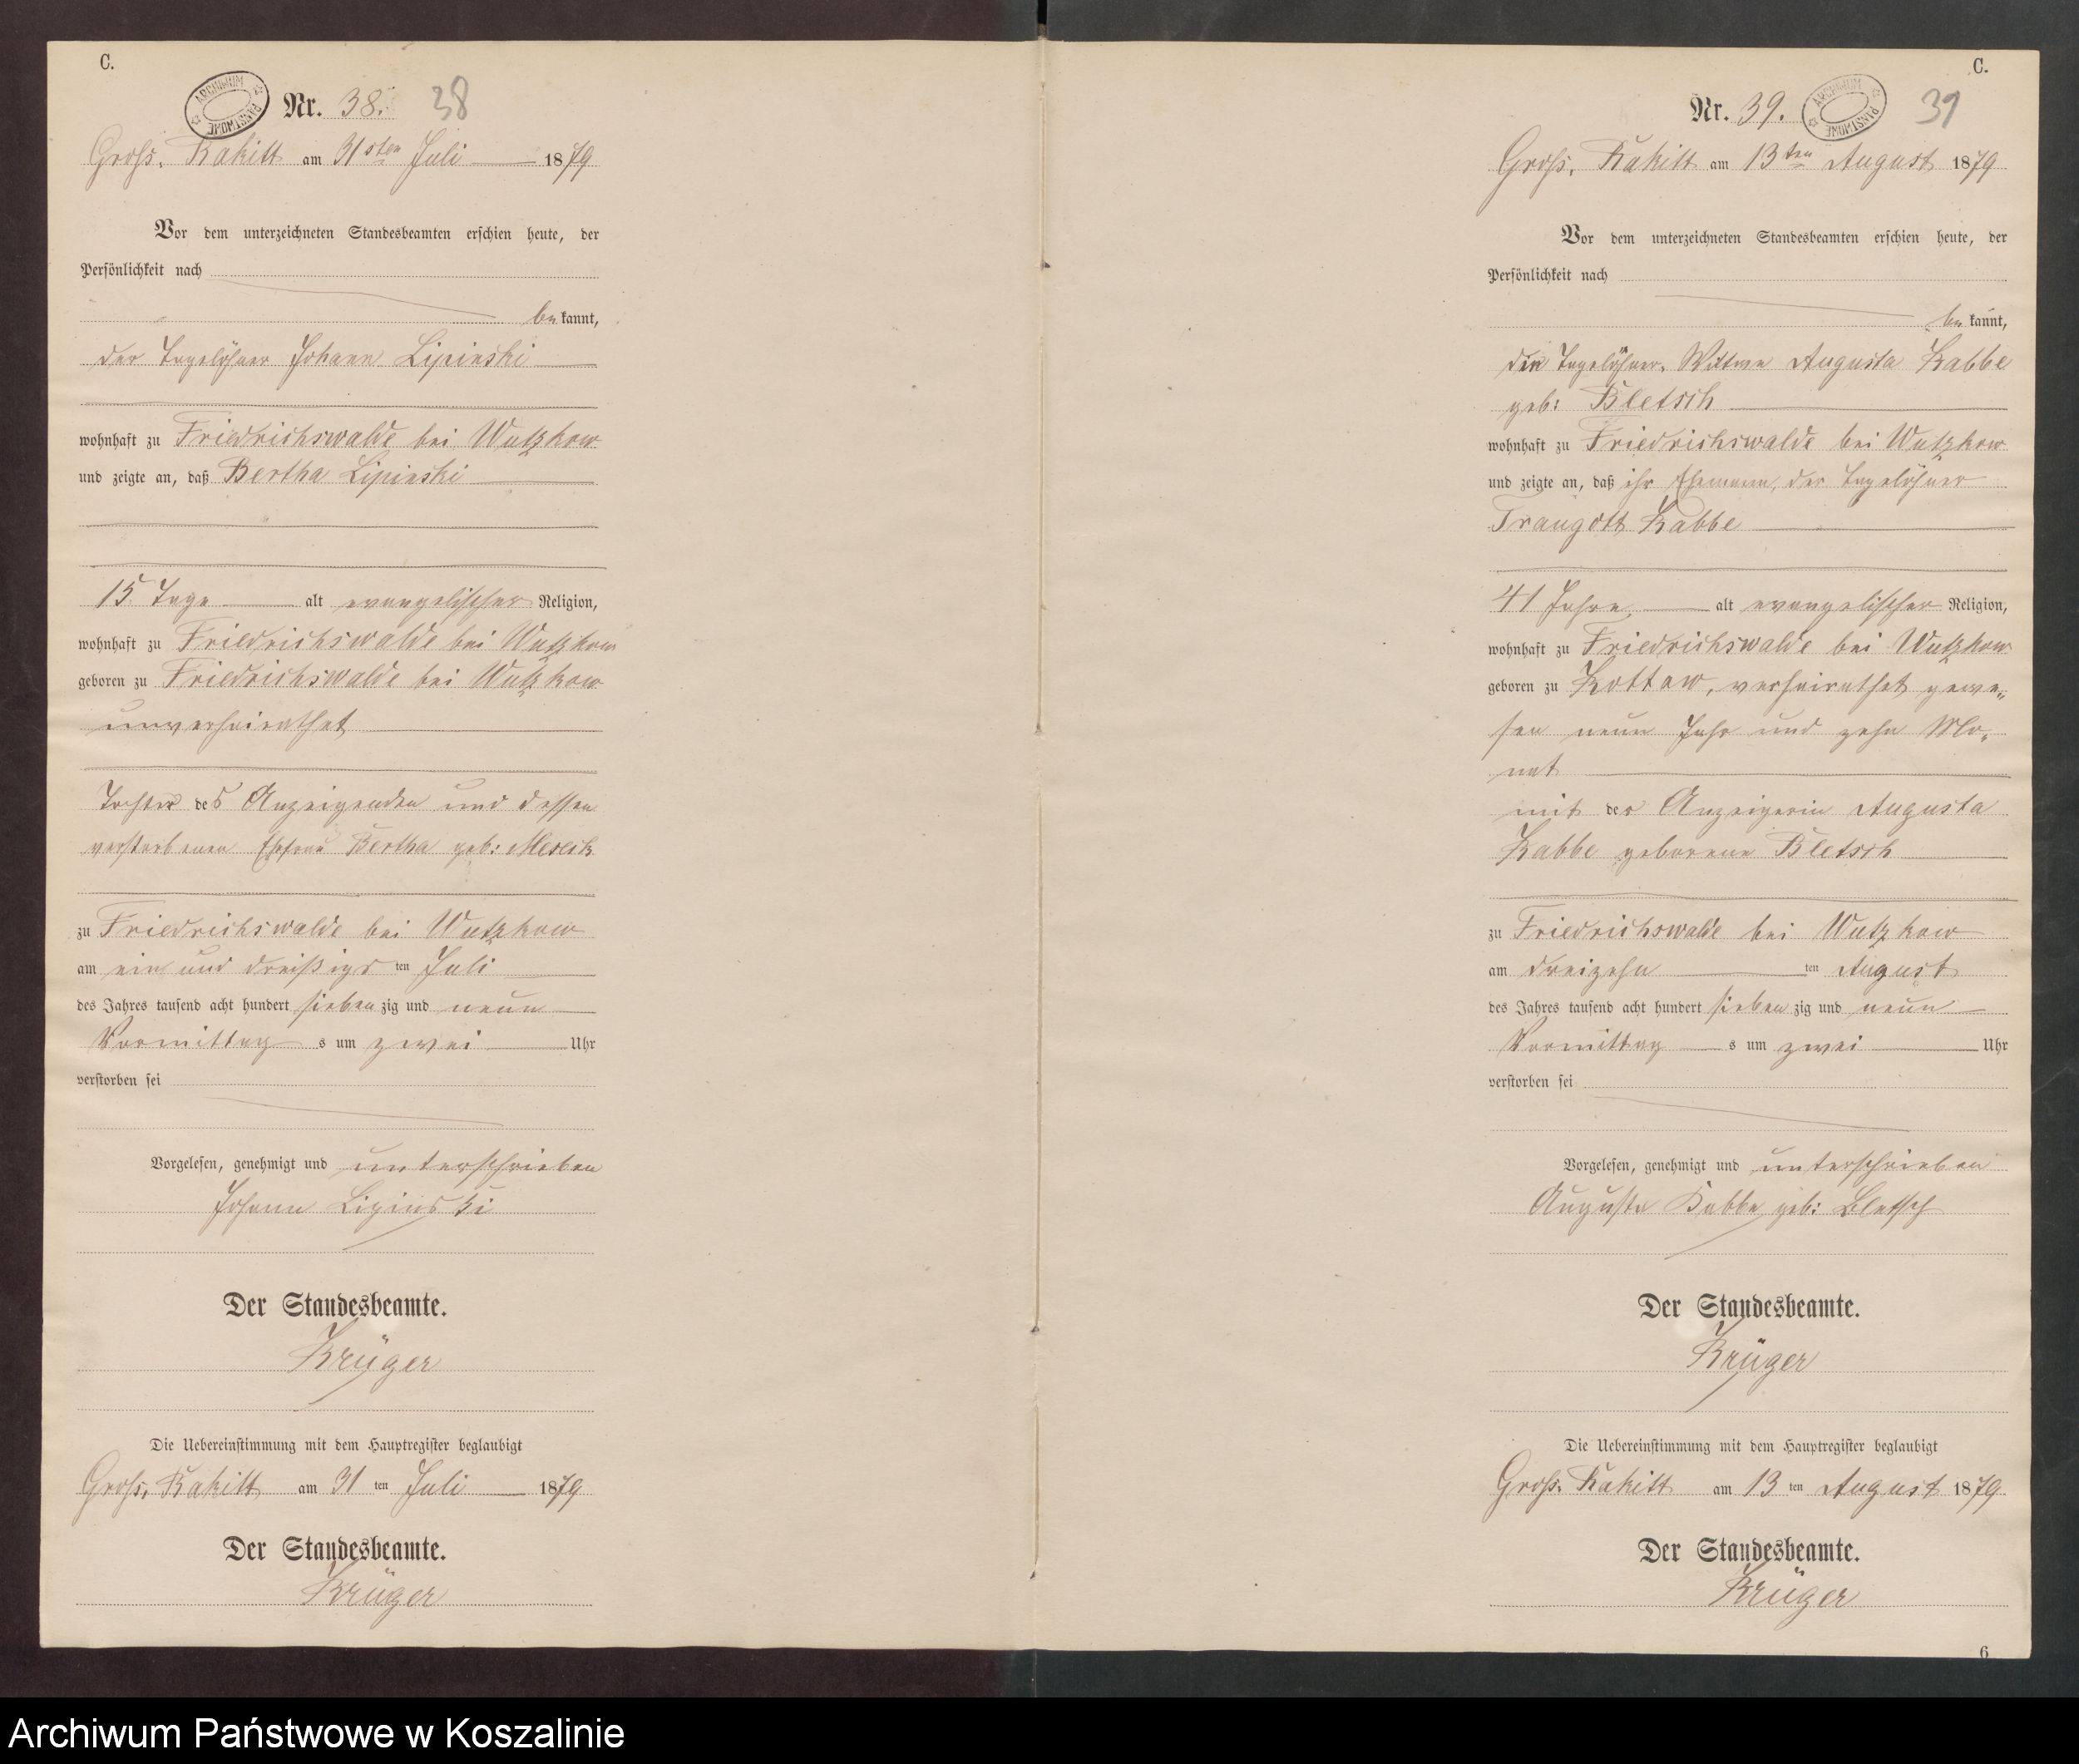 C.
ARCHIWUM PAŃSTWOWE
Nr. 38. 38
Gross. Rakitt am 31sten Juli 1879
Vor dem unterzeichneten Standesbeamten erschien heute, der
Persönlichkeit nach
bekannt,
der Tagelöhner Johann Lipinski
wohnhaft zu Friedrichswalde bei Wutzkow
und zeigte an, daß Bertha Lipinski
15 Tage alt evangelischer Religion,
wohnhaft zu Friedrichswalde bei Wutzkow
geboren zu Friedrichswalde bei Wutzkow
unverheirathet
Tochter des Anzeigenden und dessen
verstorbenen Ehefrau Bertha geb:
zu Friedrichswalde bei Wutzkow
am ein und dreißigsten Juli
des Jahres tausend acht hundert siebenzig und neun
Vormittags um zwei Uhr
verstorben sei
Vorgelesen, genehmigt und unterschrieben
Johann Lipinski
Der Standesbeamte.
Krüger
Die Uebereinstimmung mit dem Hauptregister beglaubigt
Gross. Rakitt am 31ten Juli 1879
Der Standesbeamte.
Krüger
C.
Nr. 39. 39
ARCHIWUM PAŃSTWOWE
Gross. Rakitt am 13ten August 1879
Vor dem unterzeichneten Standesbeamten erschien heute, der
Persönlichkeit nach
bekannt,
die Tagelöhner. Wittwe Augusta Kabbe
geb: Bletsch
wohnhaft zu Friedrichswalde bei Wutzkow
und zeigte an, daß ihr Ehemann, der Tagelöhner
Traugott Kabbe
41 Jahre alt evangelischer Religion,
wohnhaft zu Friedrichswalde bei Wutzkow
geboren zu Kottow, verheirathet gewe„
sen neun Jahr und zehn Mo„
nat
mit der Anzeigerin Augusta
Kabbe geborene Bletsch
zu Friedrichswalde bei Wutzkow
am dreizehnten August
des Jahres tausend acht hundert siebenzig und neun
Vormittags um zwei Uhr
verstorben sei
Vorgelesen, genehmigt und unterschrieben
Auguste Kabbe geb: Bletsch
Der Standesbeamte.
Krüger
Die Uebereinstimmung mit dem Hauptregister beglaubigt
Gross. Rakitt am 13ten August 1879
Der Standesbeamte.
Krüger
6
Archiwum Państwowe w Koszalinie